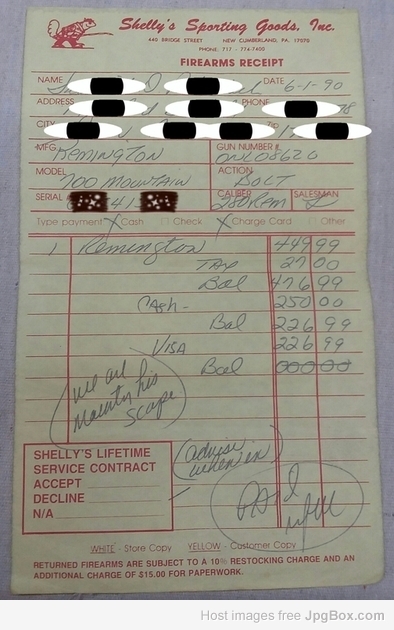 Shelly's Sporting Goods, Inc.
440 BRIDGE STREET NEW CUMBERLAND, PA. 17070
PHONE: 717 - 774-7400
FIREARMS RECEIPT
NAME DATE 6-1-90
ADDRESS PHONE 78
CITY ZIP
MFG. Remington GUN NUMBER ONL08620
MODEL 700 MOUNTAIN ACTION BOLT
SERIAL 41 CALIBER 280 Rem SALESMAN
Type payment: X Cash Check X Charge Card Other
1 Remington 449 99
TAX 27 00
Bal 476 99
CASH - 250 00
Bal 226 99
VISA 226 99
Bal 000 00
we are
mounting his
scope
(advise
when in)
SHELLY'S LIFETIME
SERVICE CONTRACT
ACCEPT
DECLINE
N/A
PAID
WHITE - Store Copy YELLOW - Customer Copy
RETURNED FIREARMS ARE SUBJECT TO A 10% RESTOCKING CHARGE AND AN
ADDITIONAL CHARGE OF $15.00 FOR PAPERWORK.
Host images free JpgBox.com